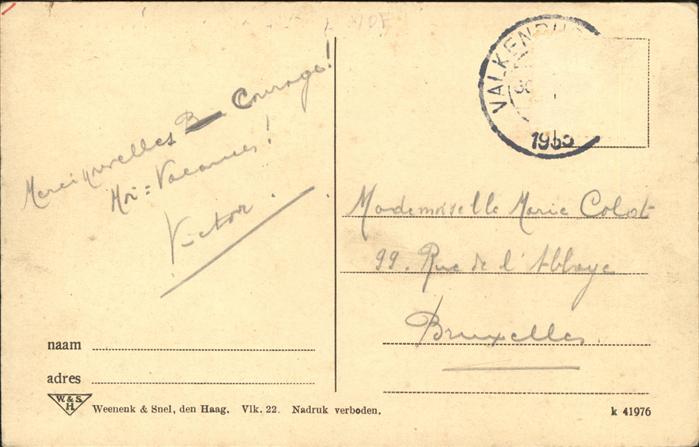 VALKENBU
30
1933
Merci nouvelles B Courage!
Moi = Vacances!
Victor.
Mademoiselle Marie Colot
99. Rue de l'Abbaye
Bruxelles.
naam
adres
W.& S.
H.
Weenenk & Snel, den Haag. Vlk. 22. Nadruk verboden.
k 41976